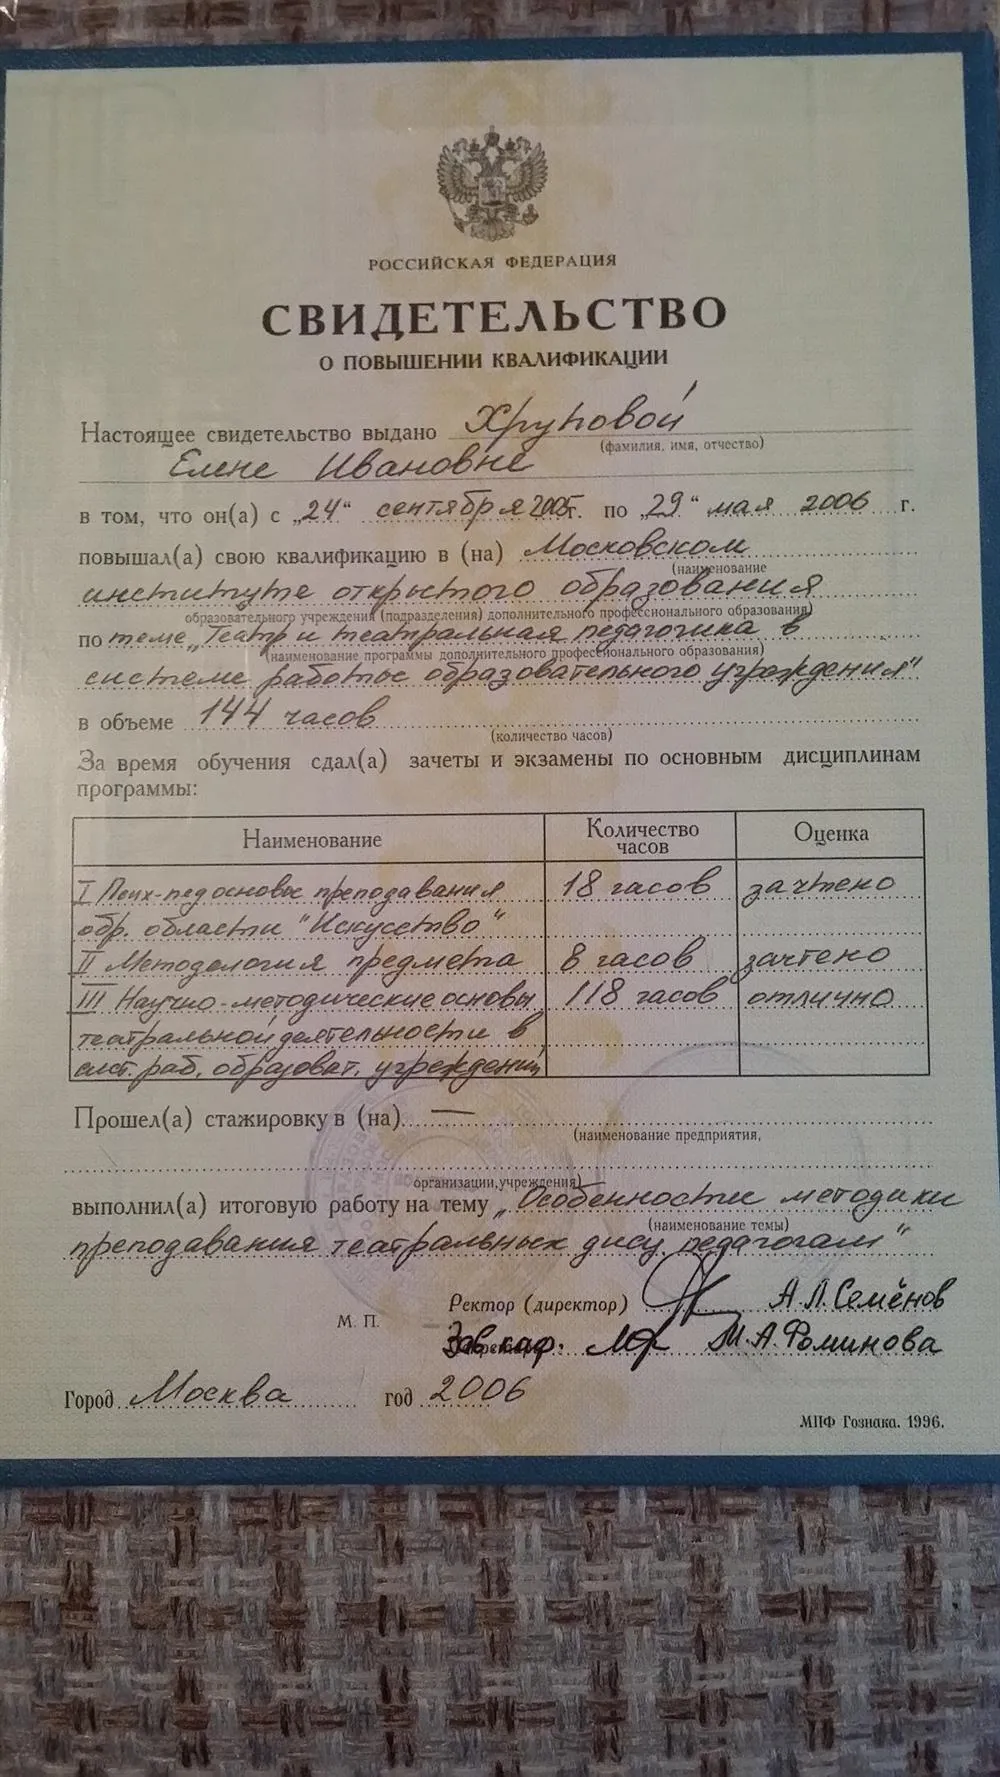 РОССИЙСКАЯ ФЕДЕРАЦИЯ
СВИДЕТЕЛЬСТВО
О ПОВЫШЕНИИ КВАЛИФИКАЦИИ
Настоящее свидетельство выдано Хруновой
(фамилия, имя, отчество)
Елене Ивановне
в том, что он(а) с „24“ сентября 2005г. по „29“ мая 2006 г.
повышал(а) свою квалификацию в (на) Московском
(наименование
институте открытого образования
образовательного учреждения (подразделения) дополнительного профессионального образования)
по теме „Театр и театральная педагогика в
(наименование программы дополнительного профессионального образования)
системе работы образовательного учреждения"
в объеме 144 часов
(количество часов)
За время обучения сдал(а) зачеты и экзамены по основным дисциплинам
программы:
Наименование Количество часов Оценка
I Псих-пед основы преподавания 18 часов зачтено
обр. области "Искусство"
II Методология предмета 8 часов зачтено
III Научно-методические основы 118 часов отлично
театральной деятельности в
сист. раб. образоват. учреждений
Прошел(а) стажировку в (на) —
(наименование предприятия,
организации, учреждения)
выполнил(а) итоговую работу на тему „Особенности методики
(наименование темы)
преподавания театральных дисц. педагогам"
Ректор (директор) А.Л.Семёнов
М. П.
Зав.каф. М.А.Фоминова
Город Москва год 2006
МПФ Гознака. 1996.